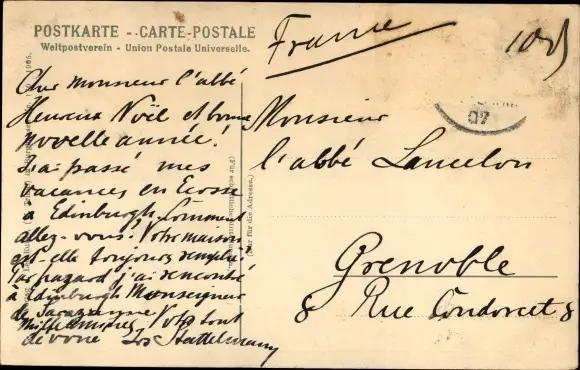 POSTKARTE - CARTE-POSTALE
Weltpostverein - Union Postale Universelle.
France
105
07
Cher monsieur l'abbé
Heureux Noël et bonne
nouvelle année!
J'ai passé mes
vacances en Ecosse
à Edinburgh. Comment
allez-vous? Votre maison
est-elle toujours remplie?
Par hazard j'ai rencontré
à Edinburgh Monseigneur
de
Mille amitiés, Votre tout
dévoué Jos
(Nur für die Adresse.)
Monsieur
l'abbé Lancelon
Grenoble
8 Rue Condorcet 8